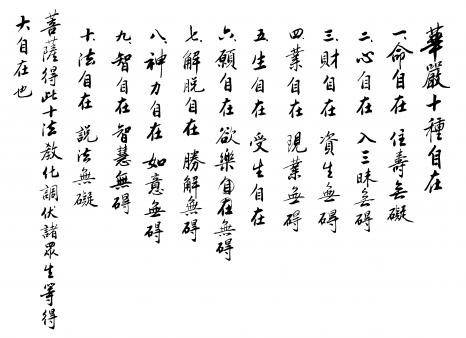 華嚴十種自在
一命自在 住壽無礙
二心自在 入三昧無碍
三財自在 資生無碍
四業自在 現業無碍
五生自在 受生自在
六願自在 欲樂自在無碍
七解脱自在 勝解無碍
八神力自在 如意無碍
九智自在 智慧無碍
十法自在 説法無礙
菩薩得此十法教化調伏諸眾生等得
大自在也